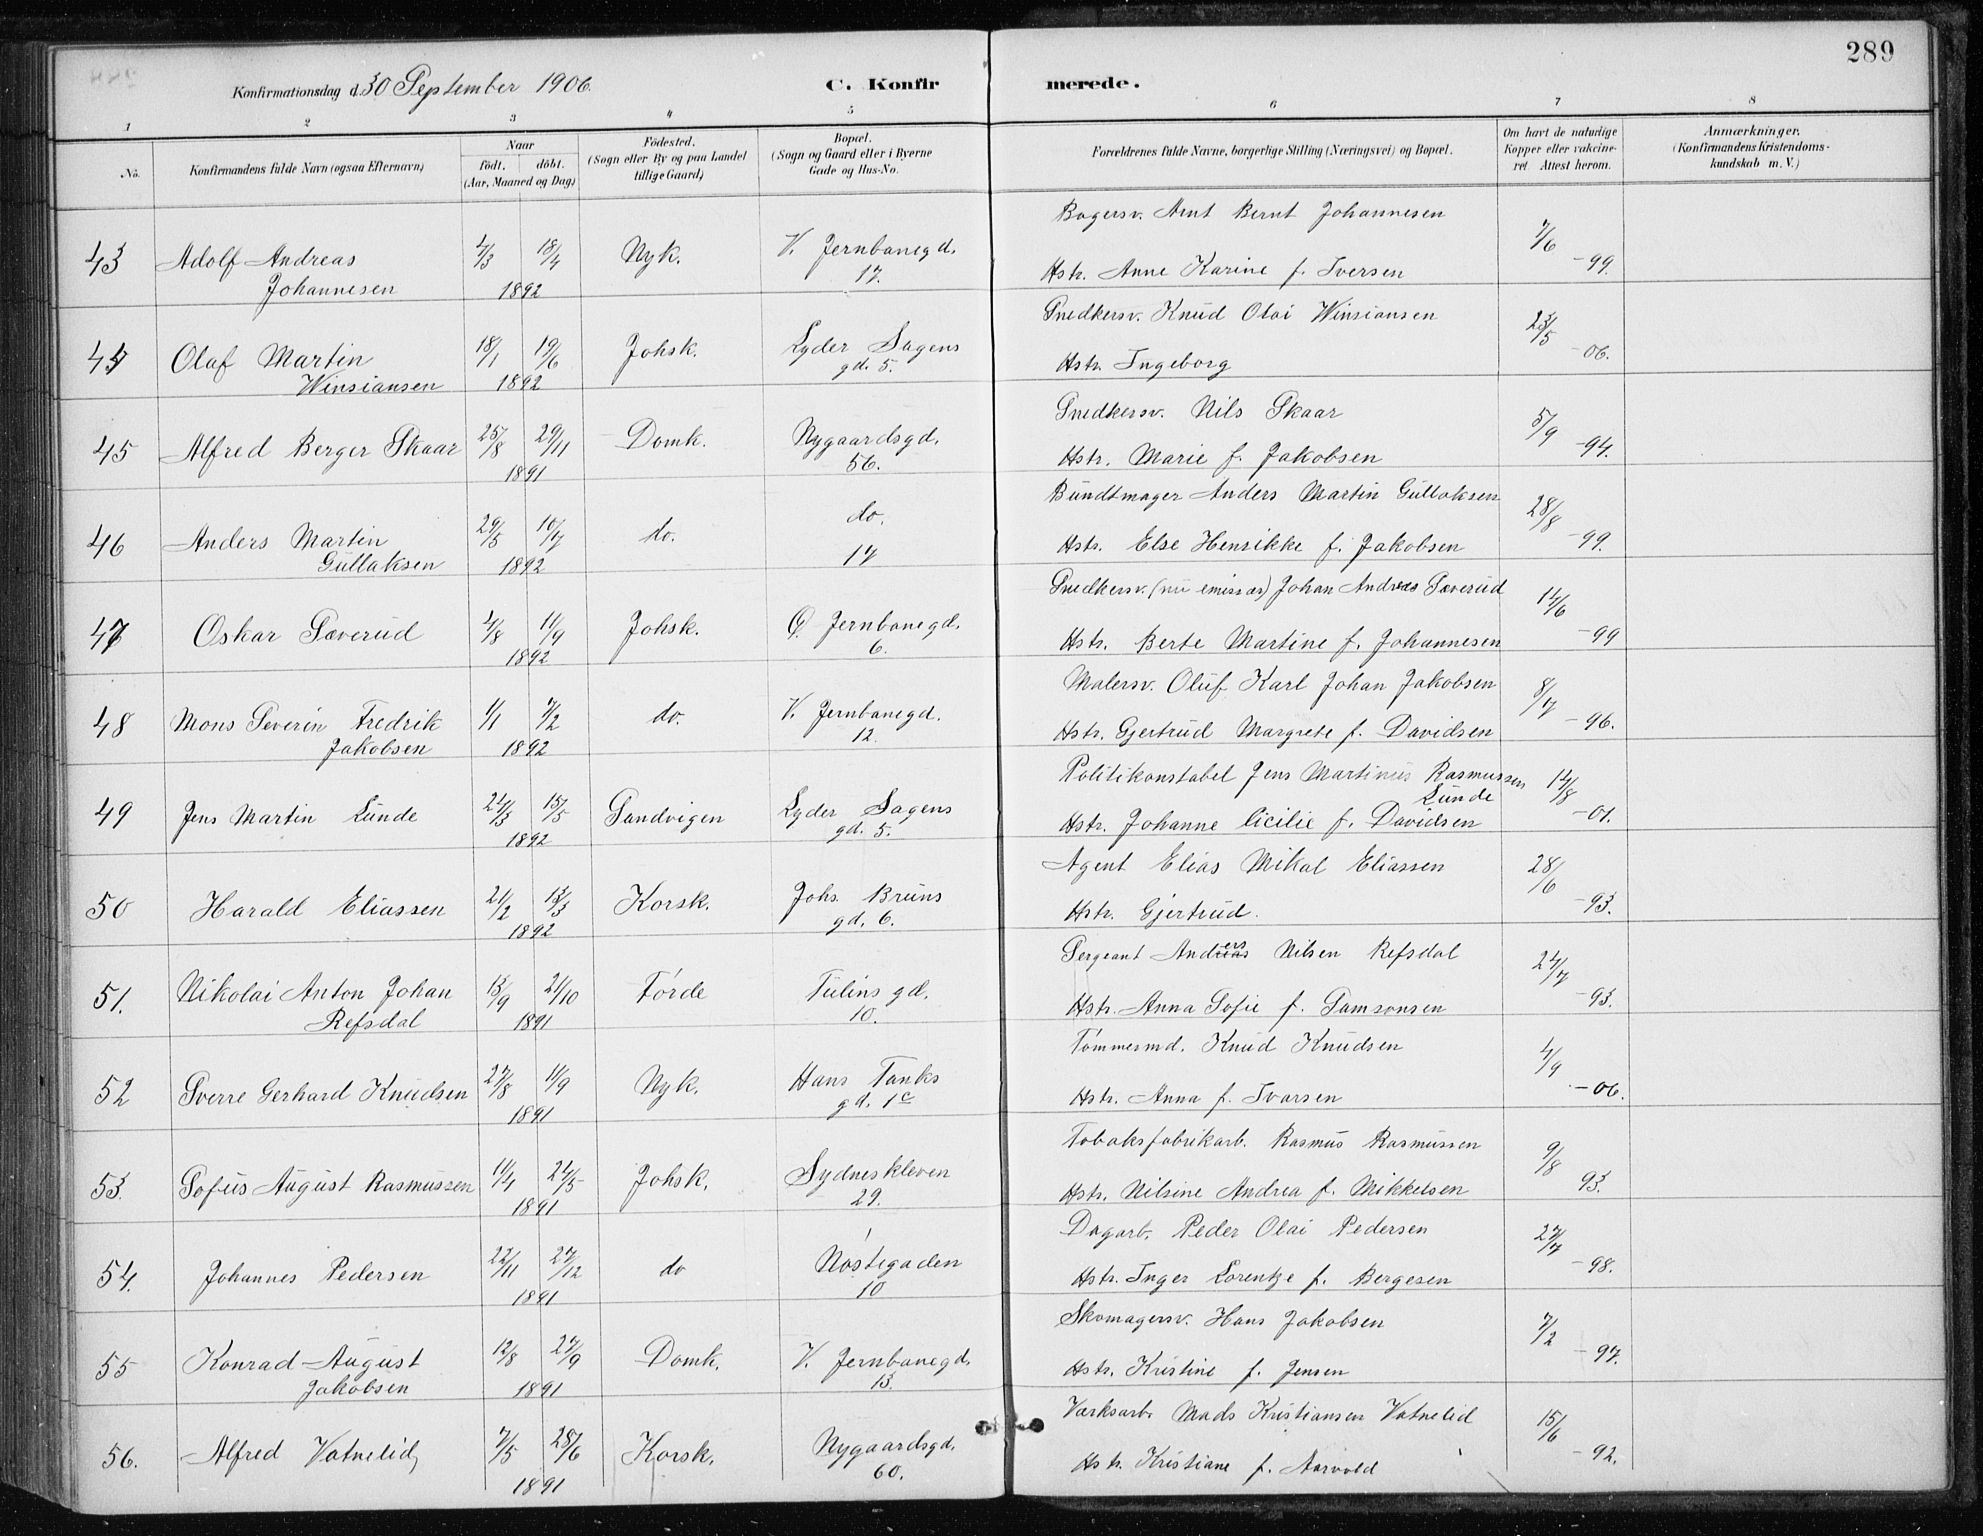 289
Konfirmationsdag d. 30 September 1906.
C. Konfirmerede.
1 2 3 4 5 6 7 8
No.
Konfirmandens fulde Navn (ogsaa Efternavn)
Naar
født. døbt.
(Aar, Maaned og Dag)
Fødested.
(Sogn eller By og paa Landet
tillige Gaard)
Bopæl.
(Sogn og Gaard eller i Byerne
Gade og Hus-No.
Forældrenes fulde Navne, borgerlige Stilling (Næringsvei) og Bopæl.
Om havt de naturlige
Kopper eller vakcine-
ret Attest herom.
Anmærkninger.
(Konfirmandens Kristendoms-
kundskab m. V.)
43 Adolf Andreas 4/3 18/4 Nyk. V. Jernbanegd. Bagersv. Arnt Bernt Johannesen 7/6
Johannesen 1892 17. Hstr. Anne Karine f. Iversen -99.
44 Olaf Martin 18/1 19/6 Johsk. Lyder Sagens Snedkersv. Knud Olai Winsiansen 23/5
Winsiansen 1892 gd. 5. Hstr. Ingeborg -06.
45 Alfred Berger Skaar 25/8 29/11 Domk. Nygaardsgd. Snedkersv. Nils Skaar 5/9
1891 56. Hstr. Marie f. Jakobsen -94.
46 Anders Martin 29/5 10/7 do. do. Bundtmager Anders Martin Gullaksen 28/8
Gullaksen 1892 17 Hstr. Else Henrikke f. Jakobsen -99.
47 Oskar Sæverud 4/8 11/9 Johsk. Ø. Jernbanegd. Snedkersv. (nu emissær) Johan Andreas Sæverud 14/6
1892 6. Hstr. Berte Martine f. Johannesen -99
48 Mons Severin Fredrik 1/1 7/2 do. V. Jernbanegd. Malersv. Oluf Karl Johan Jakobsen 8/7
Jakobsen 1892 12. Hstr. Gjertrud Margrete f. Davidsen -96.
49 Jens Martin Lunde 24/3 15/5 Sandvigen Lyder Sagens Politikonstabel Jens Martinus Rasmussen 14/8
Lunde
1892 gd. 5. Hstr. Johanne Cicilie f. Davidsen -01.
50 Harald Eliassen 21/2 13/3 Korsk. Johs. Bruns Agent Elias Mikal Eliassen 28/6
1892 gd. 6. Hstr. Gjertrud. -93.
51. Nikolai Anton Johan 13/9 21/10 Førde Tulins gd. Sergeant Anders Nilsen Refsdal 24/7
Refsdal 1891 10. Hstr. Anna Sofie f. Samsonsen -93.
52 Sverre Gerhard Knudsen 27/8 11/9 Nyk. Hans Tanks Tømmermd. Knud Knudsen 4/9
1891 gd. 1c Hstr. Anna f. Ivarsen -06.
53. Sofus August Rasmussen 11/4 24/5 Johsk. Sydneskleven Tobaksfabrikarb. Rasmus Rasmussen 9/8
1891 29. Hstr. Nilsine Andrea f. Mikkelsen 93.
54. Johannes Pedersen 22/11 27/12 do Nøstegaden Dagarb. Peder Olai Pedersen 27/7
1891 10 Hstr. Inger Lorentze f. Bergesen -98.
55 Konrad August 12/8 27/9 Domk. V. Jernbanegd. Skomagersv. Hans Jakobsen 7/2
Jakobsen 1891 13. Hstr. Kristine f. Jensen -97.
56. Alfred Vatnelid 7/5 28/6 Korsk. Nygaardsgd. Værksarb. Mads Kristiansen Vatnelid 15/6
1891 60. Hstr. Kristiane f. Aarvold -92.